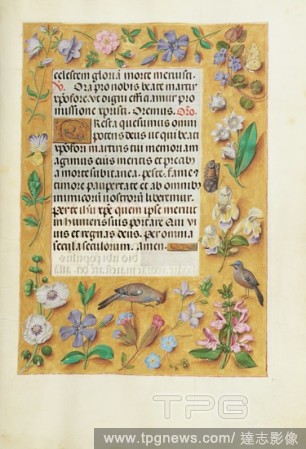 celestem gloriã morte meruisti.
V. Ora pro nobis beate martir
xpofore. Vt digni efficiamur pro
missione xpristi. Oremus. Oro.
Presta quesumus omni
potens deus ut qui beati
xpofori martiris tui memoriam
agimus eius meritis et precib9
a morte subitanea. peste. fame.
timore. paupertate et ab omnib9
inimicorum nostrorum liberemur.
Per te ihu xpe quem ipse meruit
in humeris suis portare. Qui vi
vis et regnas deus. Per omnia
secula seculorum. Amen.
TPG
www.tpgnews.com/ 達志影像